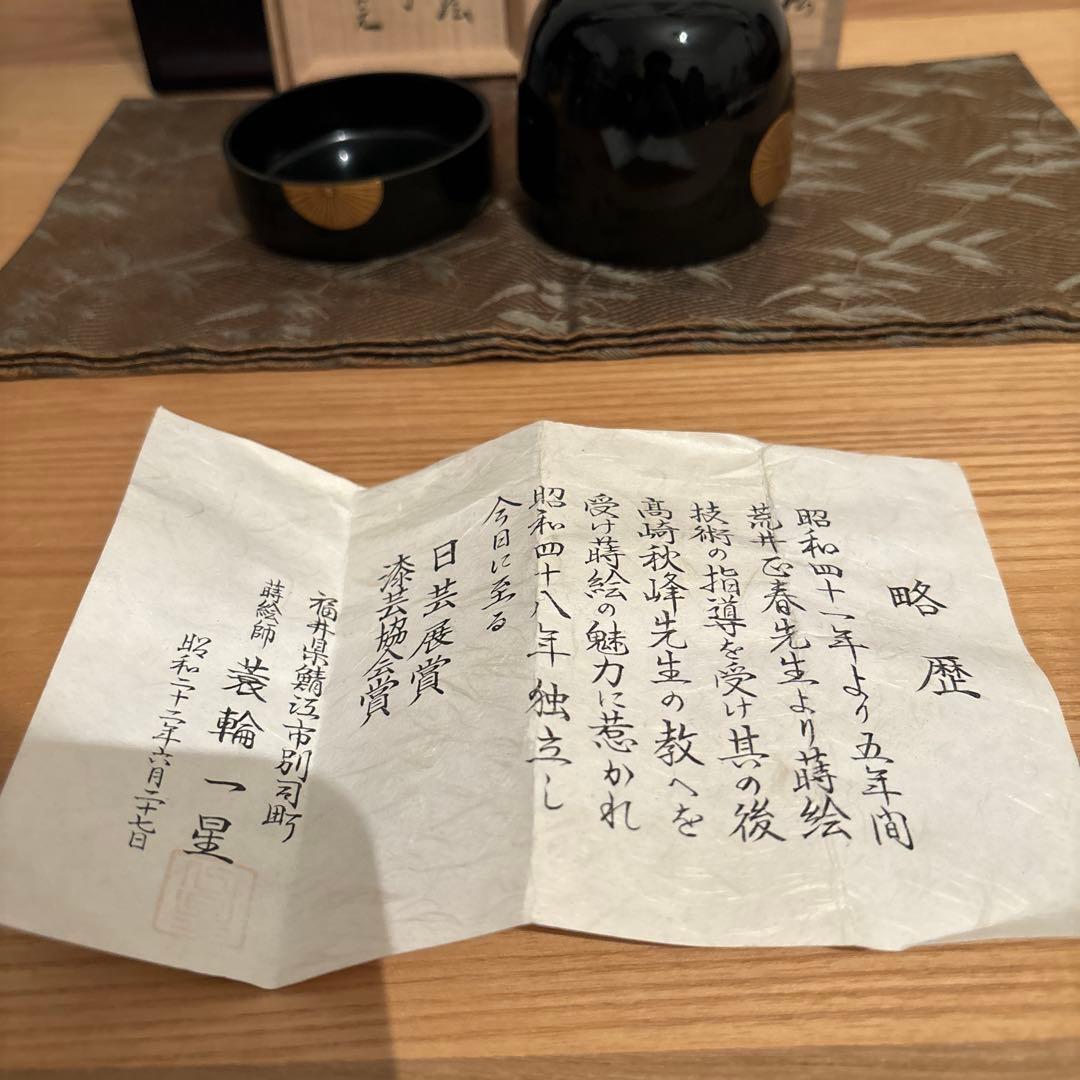 略歴
昭和四十一年より五年間
荒井正春先生より蒔絵
技術の指導を受け其の後
高崎秋峰先生の教へを
受け蒔絵の魅力に惹かれ
昭和四十八年独立し
今日に至る
日芸展賞
漆芸協会賞
福井県鯖江市別司町
蒔絵師 蓑輪一星
昭和二十二年六月二十七日